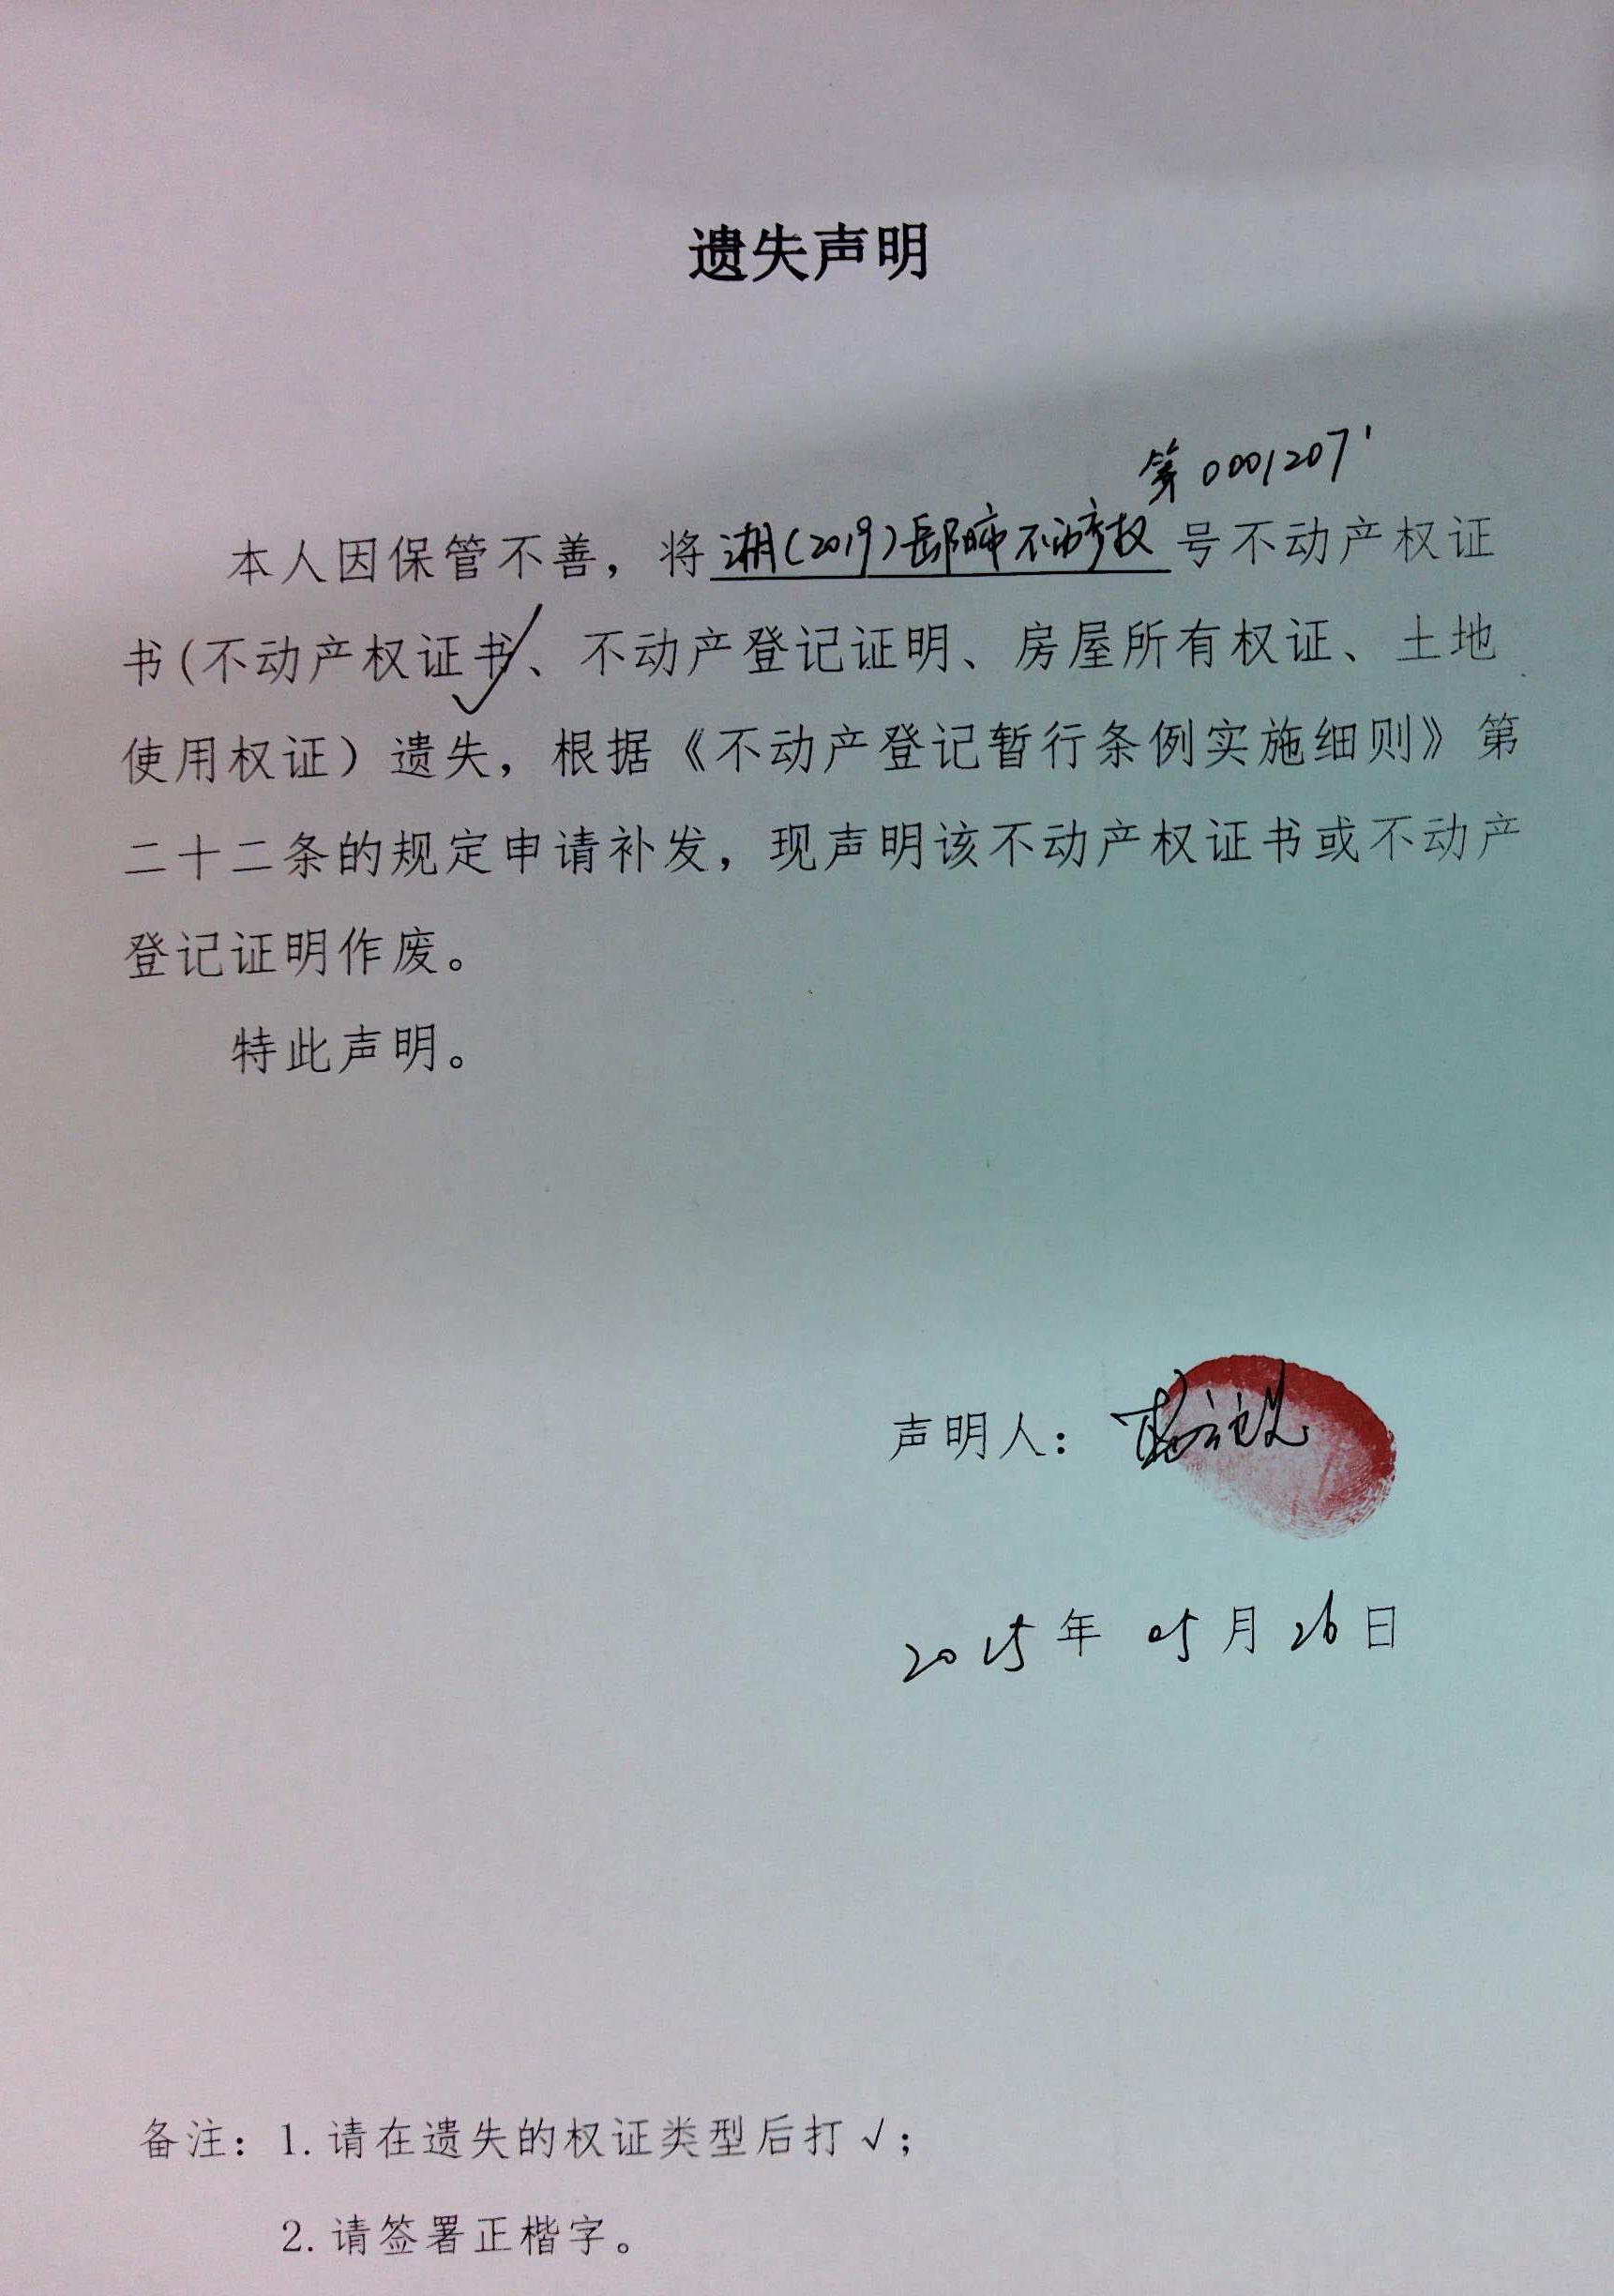 遗失声明
第0001207
本人因保管不善，将湘(2019)岳阳市不动产权号不动产权证
书(不动产权证书✓、不动产登记证明、房屋所有权证、土地
使用权证）遗失，根据《不动产登记暂行条例实施细则》第
二十二条的规定申请补发，现声明该不动产权证书或不动产
登记证明作废。
特此声明。
声明人：
2025年05月26日
备注：1.请在遗失的权证类型后打√；
2.请签署正楷字。